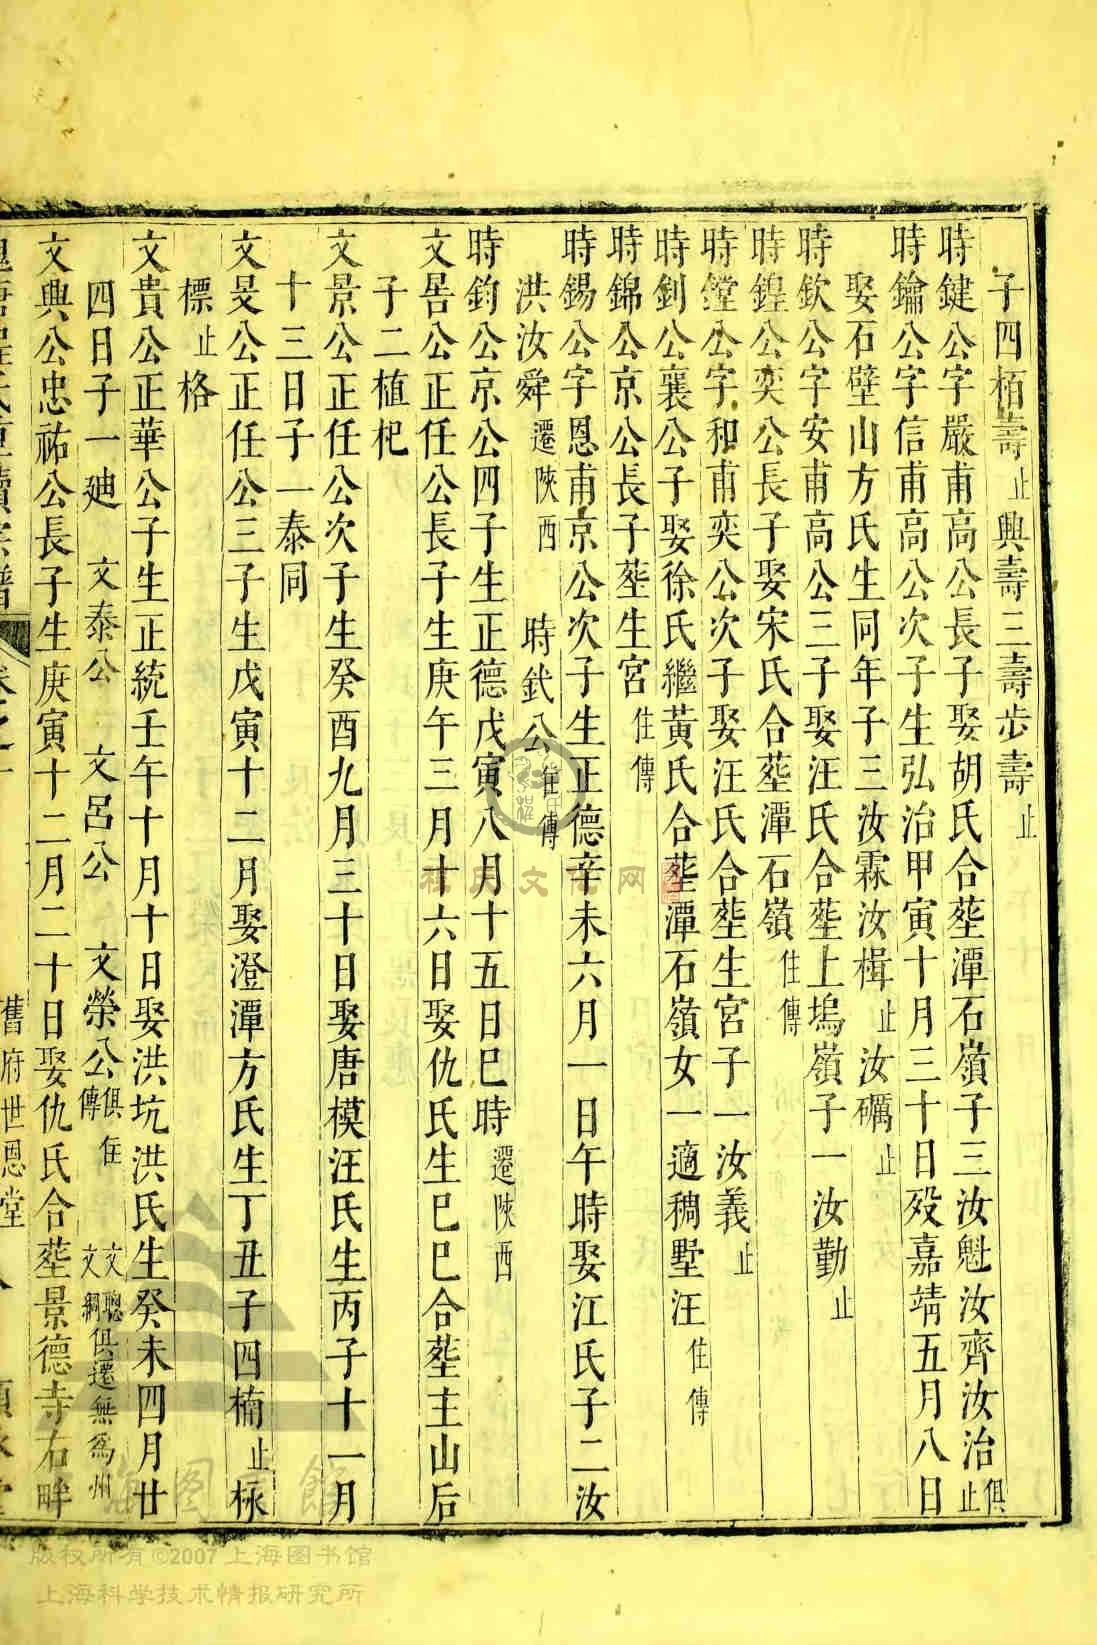 子四栢壽止興壽三壽步壽止
時鍵公字嚴甫高公長子娶胡氏合塟潭石嶺子三汝魁汝齊汝治俱止
時鑰公字信甫高公次子生弘治甲寅十月三十日殁嘉靖五月八日
娶石壁山方氏生同年子三汝霖汝楫止汝礪止
時欽公字安甫高公三子娶汪氏合塟上塢嶺子一汝勤止
時鍠公奕公長子娶宋氏合塟潭石嶺住傳
時鏜公字和甫奕公次子娶汪氏合塟生宮子一汝義止
時釗公襄公子娶徐氏繼黃氏合塟潭石嶺女一適稠墅汪住傳
時錦公京公長子塟生宮住傳
時錫公字恩甫京公次子生正德辛未六月一日午時娶江氏子二汝
洪汝舜遷陝西 時鈂公住傳
時鈞公京公四子生正德戊寅八月十五日巳時遷陝西
文㫷公正任公長子生庚午三月十六日娶仇氏生己巳合塟主山后
子二植杞
文景公正任公次子生癸酉九月三十日娶唐模汪氏生丙子十一月
十三日子一泰同
文旻公正任公三子生戊寅十二月娶澄潭方氏生丁丑子四楠止椂
標止格
文貴公正華公子生正統壬午十月十日娶洪坑洪氏生癸未四月廿
四日子一廸 文泰公 文呂公 文榮公俱住傳 文聰文綱俱遷無爲州
文興公忠祐公長子生庚寅十二月二十日娶仇氏合塟景德寺右畔
舊府世恩堂
程氏文化网
版权所有©2007上海图书馆
上海科学技术情报研究所